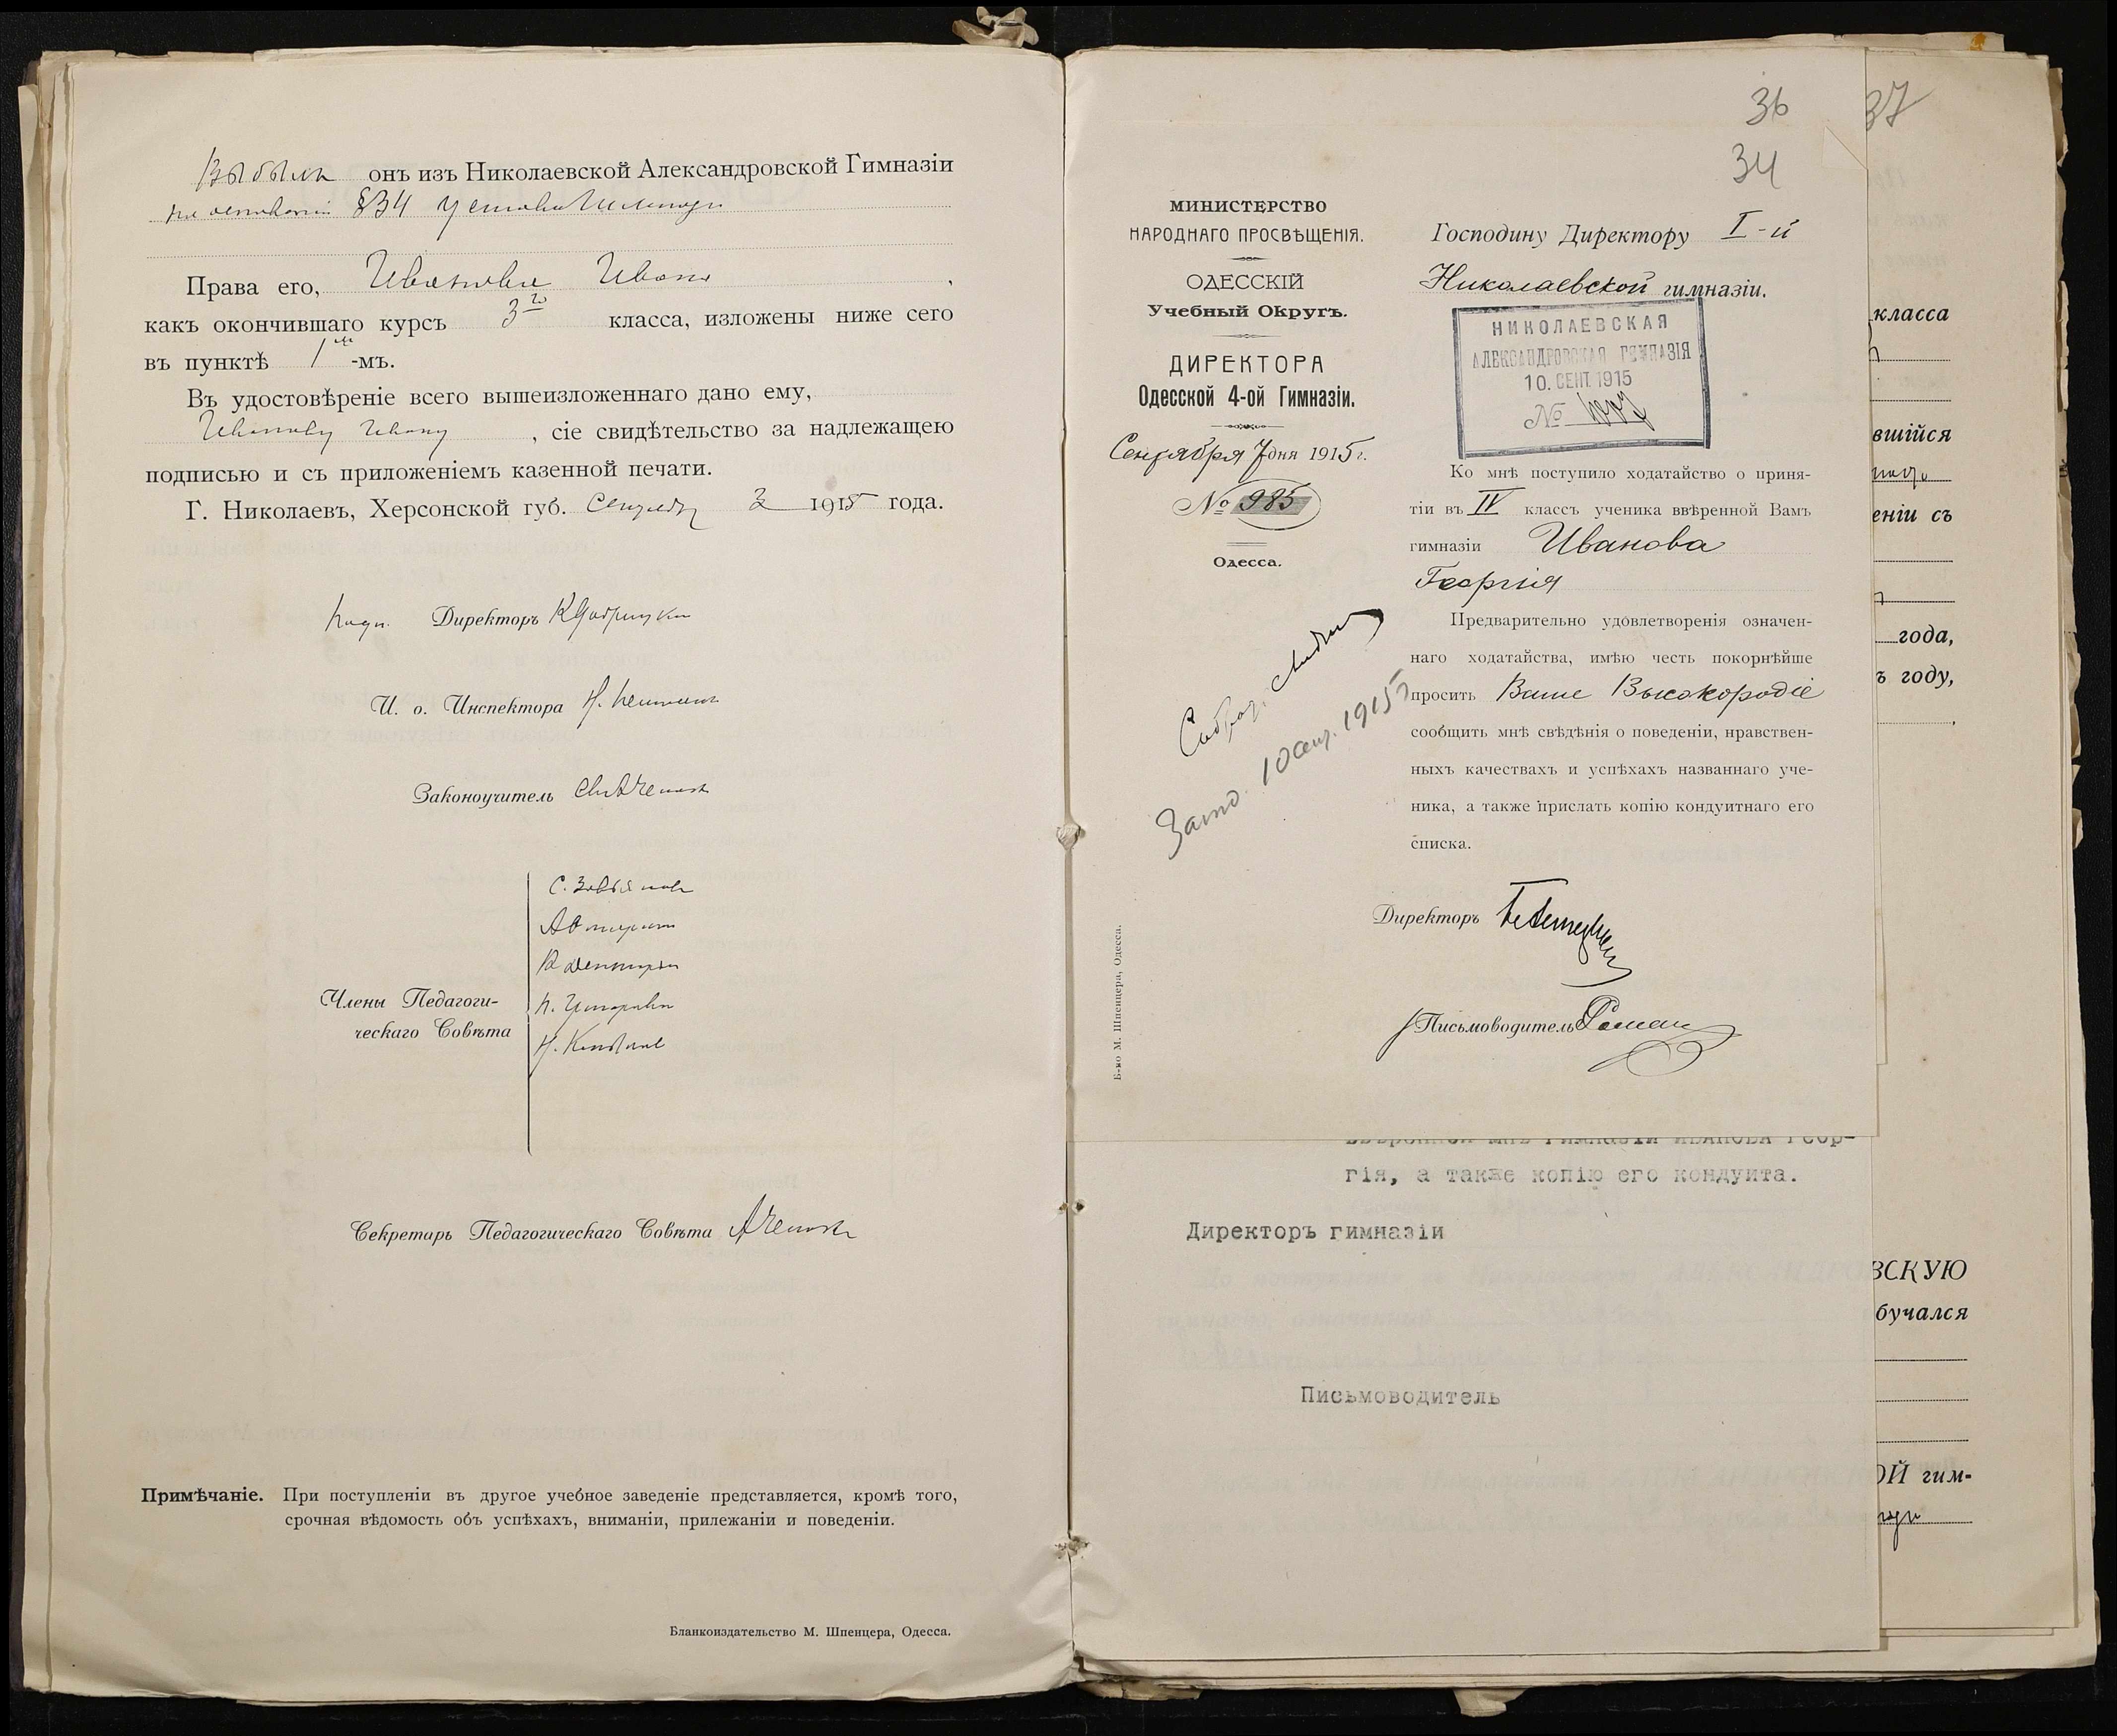 Выбылъ онъ изъ Николаевской Александровской Гимназіи
на основаніи §34 устава Гимназіи
Права его, Иванова Ивана,
какъ окончившаго курсъ 3го класса, изложены ниже сего
въ пунктѣ 1м -мъ.
Въ удостовѣреніе всего вышеизложеннаго дано ему,
Иванову Ивану, сіе свидѣтельство за надлежащею
подписью и съ приложеніемъ казенной печати.
Г. Николаевъ, Херсонской губ. 3 1915 года.
Директоръ
И. о. Инспектора
Законоучитель
Члены Педагоги-
ческаго Совѣта
Секретарь Педагогическаго Совѣта
Примѣчаніе. При поступленіи въ другое учебное заведеніе представляется, кромѣ того,
срочная вѣдомость объ успѣхахъ, вниманіи, прилежаніи и поведеніи.
Бланкоиздательство М. Шпенцера, Одесса.
36
34
МИНИСТЕРСТВО
НАРОДНАГО ПРОСВѢЩЕНІЯ.
ОДЕССКІЙ
Учебный Округъ.
ДИРЕКТОРА
Одесской 4-ой Гимназіи.
Сентября 7 дня 1915 г.
№ 985
Одесса.
Господину Директору I-й
Николаевской гимназіи.
НИКОЛАЕВСКАЯ
АЛЕКСАНДРОВСКАЯ ГИМНАЗІЯ
10. СЕНТ. 1915
№
Ко мнѣ поступило ходатайство о приня-
тіи въ IV классъ ученика ввѣренной Вамъ
гимназіи Иванова
Георгія
Предварительно удовлетворенія означен-
наго ходатайства, имѣю честь покорнѣйше
просить Ваше Высокородіе
сообщить мнѣ свѣдѣнія о поведеніи, нравствен-
ныхъ качествахъ и успѣхахъ названнаго уче-
ника, а также прислать копію кондуитнаго его
списка.
10 сент. 1915
Директоръ
Письмоводитель
Б-во М. Шпенцера, Одесса.
ввѣренной мнѣ гимназіи ИВАНОВА Геор-
гія, а также копію его кондуита.
Директоръ гимназіи
Письмоводитель
37
класса
вшійся
еніи съ
года,
ъ году,
ВСКУЮ
бучался
ОЙ гим-